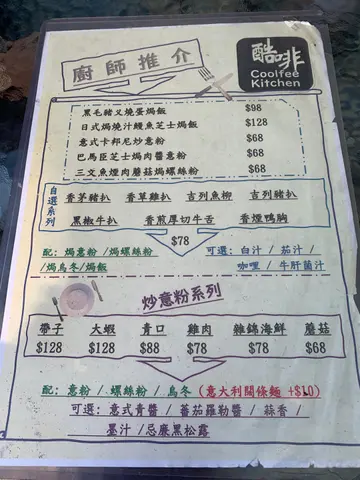 廚師推介
酷啡
Coolfee
Kitchen
黑毛豬叉燒蛋焗飯 $98
日式焗燒汁鰻魚芝士焗飯 $128
意式卡邦尼炒意粉 $68
巴馬臣芝士焗肉醬意粉 $68
三文魚煙肉蘑菇焗螺絲粉 $68
自選系列
香茅豬扒 香草雞扒 吉列魚柳 吉列豬扒
黑椒牛扒 香煎厚切牛舌 香煙鴨胸
$78
配: 焗意粉 /焗螺絲粉 可選: 白汁 / 茄汁 /
/焗烏冬/焗飯 咖哩 / 牛肝菌汁
炒意粉系列
帶子 大蝦 青口 雞肉 雜錦海鮮 蘑菇
$128 $128 $88 $78 $78 $68
配: 意粉 / 螺絲粉 / 烏冬 (意大利闊條麵 +$10)
可選: 意式青醬 / 蕃茄羅勒醬 / 蒜香 /
墨汁 /忌廉黑松露